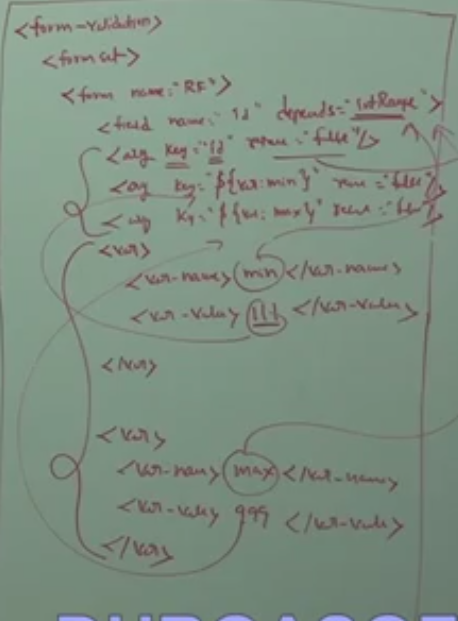 <form-validation>
<form set>
<form name="RF">
<field name="id" depends="intRange">
<arg key="id" resource="false"/>
<arg key="${var:min}" resource="false"/>
<arg key="${var:max}" resource="false"/>
<var>
<var-name> min </var-name>
<var-value> 111 </var-value>
</var>
<var>
<var-name> max </var-name>
<var-value> 999 </var-value>
</var>